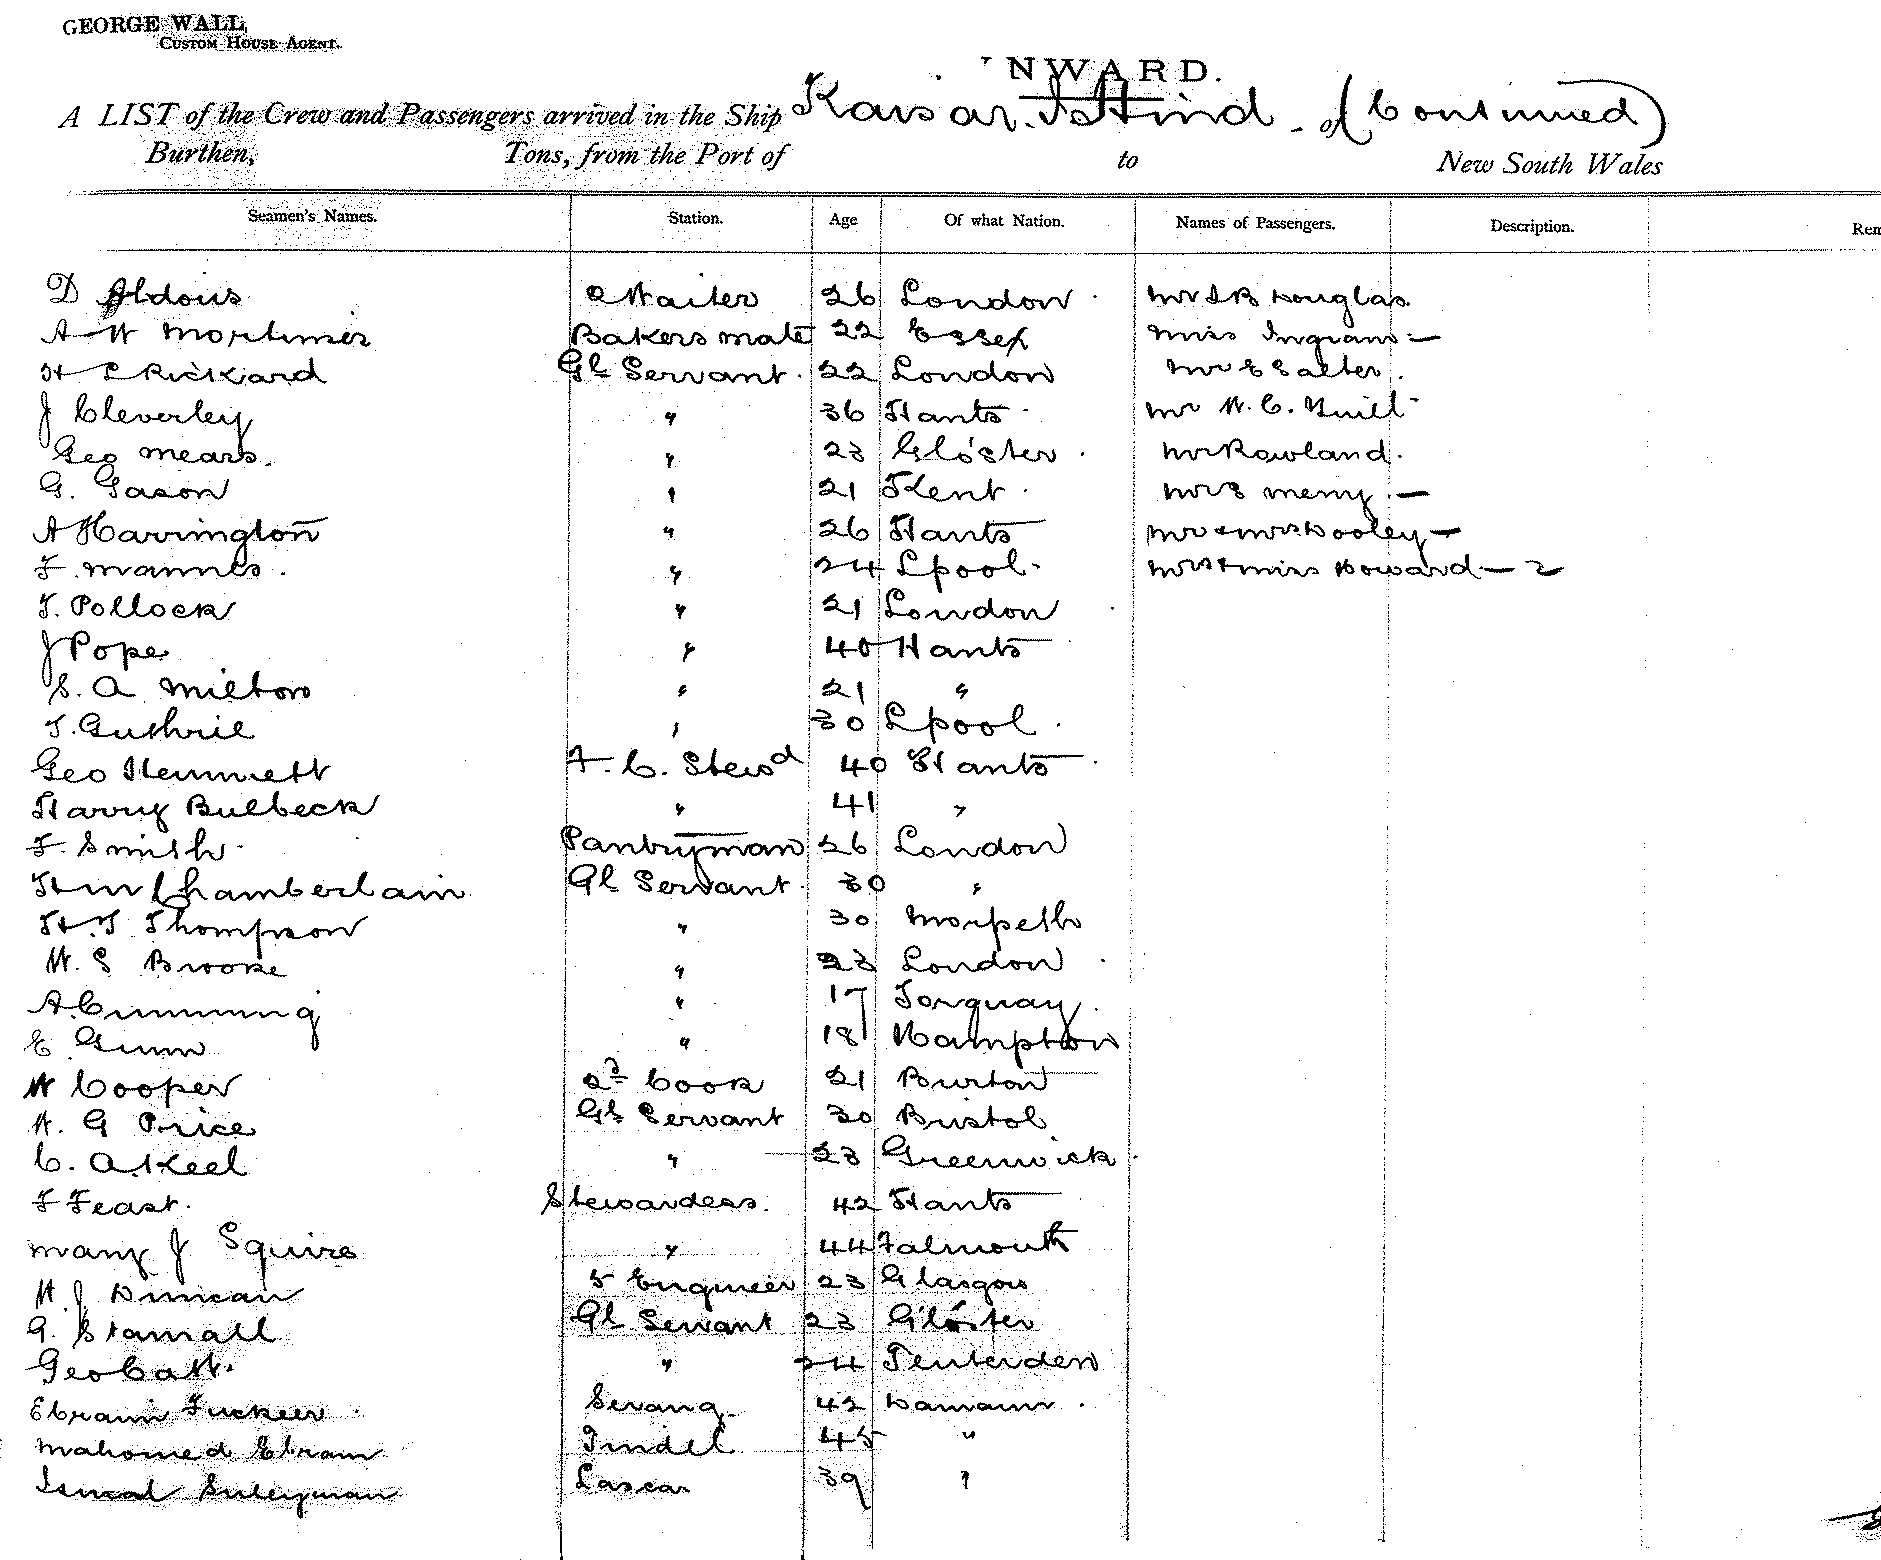 GEORGE WALL
CUSTOM HOUSE AGENT.
NWARD.
A LIST of the Crew and Passengers arrived in the Ship Kaisar. I Hind - of (Continued)
Burthen, Tons, from the Port of to New South Wales
Seamen's Names. Station. Age Of what Nation. Names of Passengers. Description. Rem
D Aldous Waiter 26 London Mr I B Douglas
A W Mortimer Bakers mate 22 Essex Miss Ingram -
H L Rickard Gl Servant 22 London Mr E Salter
J Cleverley " 36 Hants Mr W. C.
Geo Mears. " 23 Glo'ster Mr Rowland
G. Gason " 21 Kent Mr S Merry -
A Harrington " 26 Hants Mr & Mrs Dooley -
F. Mannes " 24 Lpool Mrs & Miss Howard - 2
T. Pollock " 21 London
J Pope " 40 Hants
S. A Milton " 21 "
T. Guthrie " 30 Lpool
Geo Hemmett F. C. Stewd 40 Hants
Harry Bulbeck " 41 "
F. Smith Pantryman 26 London
H M Chamberlain Gl Servant 30 "
H. T Thompson " 30 Morpeth
W. S Brooke " 23 London
A. Cumming " 17 Torquay
E Gunn " 18 Hampton
W Cooper 2d Cook 21 Burton
W. G Price Gl Servant 30 Bristol
C. A Keel " 23 Greenwich
F Feast. Stewardess. 42 Hants
Mary J Squire " 44 Falmouth
W. J Duncan 5 Engineer 23 Glasgow
G. Stansall Gl Servant 23 Glo'ster
Geo Catt. " 24 Tenterden
Ebraim Fuckeer Serang 42 Damaun
Mahomed Ebram Tindel 45 "
Ismal Suleyman Lascar 39 "